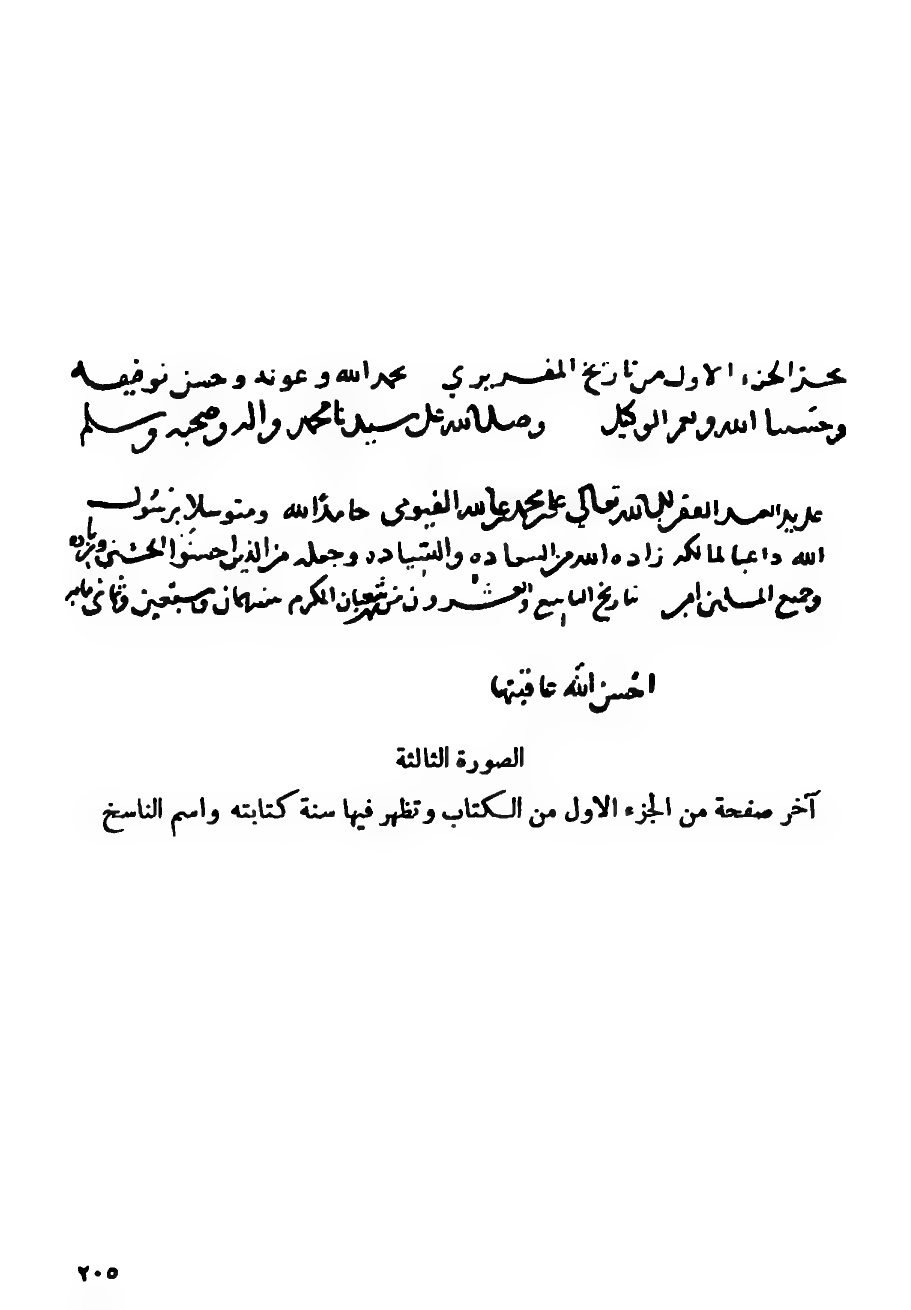 نجز الجزء الاول من تاريخ المقريزي بحمد الله وعونه وحسن توفيقه
وحسبنا الله ونعم الوكيل وصلى الله على سيدنا محمد واله وصحبه وسلم
على يد العبد الفقير الى الله تعالى على بن محمد بن عبد الله الفيومى حامدًا لله ومتوسلا برسول
الله داعيا لمالكه زاده الله من السعاده والسياده وجعله من الذين احسنوا الحسنى وزياده
وجميع المسلمين امين بتاريخ التاسع والعشرون من شهر شعبان المكرم سنه ثمان وسبعين وثمانى مايه
احسن الله عاقبتها
الصورة الثالثة
آخر صفحة من الجزء الاول من الكتاب وتظهر فيها سنة كتابته واسم الناسخ
٢٠٥